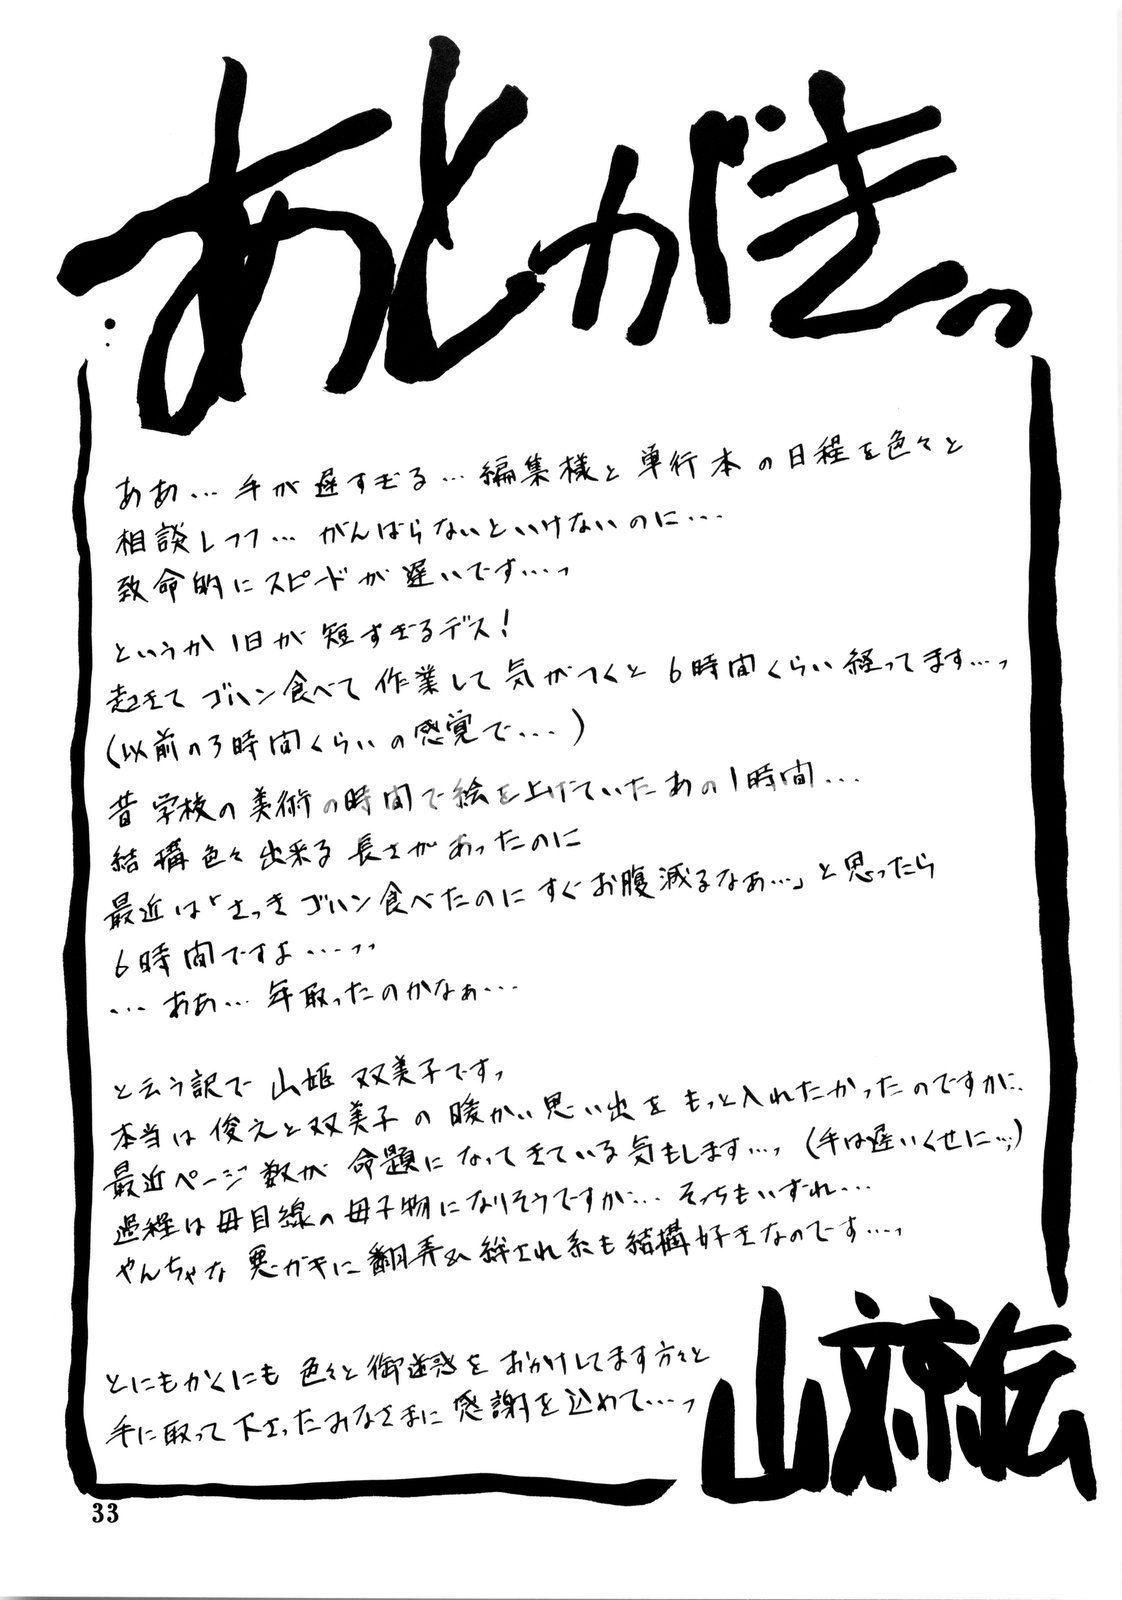 あとがきっ
ああ…手が遅すぎる…編集様と単行本の日程を色々と
相談しつつ…がんばらないといけないのに…
致命的にスピードが遅いです…っ
というか1日が短すぎるデス!
起きてゴハン食べて作業して気がつくと6時間くらい経ってます…っ
(以前の3時間くらいの感覚で…)
昔学校の美術の時間で絵を上げていたあの1時間…
結構色々出来る長さがあったのに
最近は「さっきゴハン食べたのにすぐお腹減るなぁ…」と思ったら
6時間ですよ…っっ
…ああ…年取ったのかなぁ…
と云う訳で山姫双美子ですっ
本当は俊之と双美子の暖かい思い出をもっと入れたかったのですが、
最近ページ数が命題になってきている気もします…っ(手は遅いくせに…っ)
過程は母目線の母子物になりそうですが…そっちもいずれ…
やんちゃな悪ガキに翻弄&絆され系も結構好きなのです…っ
とにもかくにも色々と御迷惑をおかけしてます方々と
手に取って下さったみなさまに感謝を込めて…っ
山文京伝
33